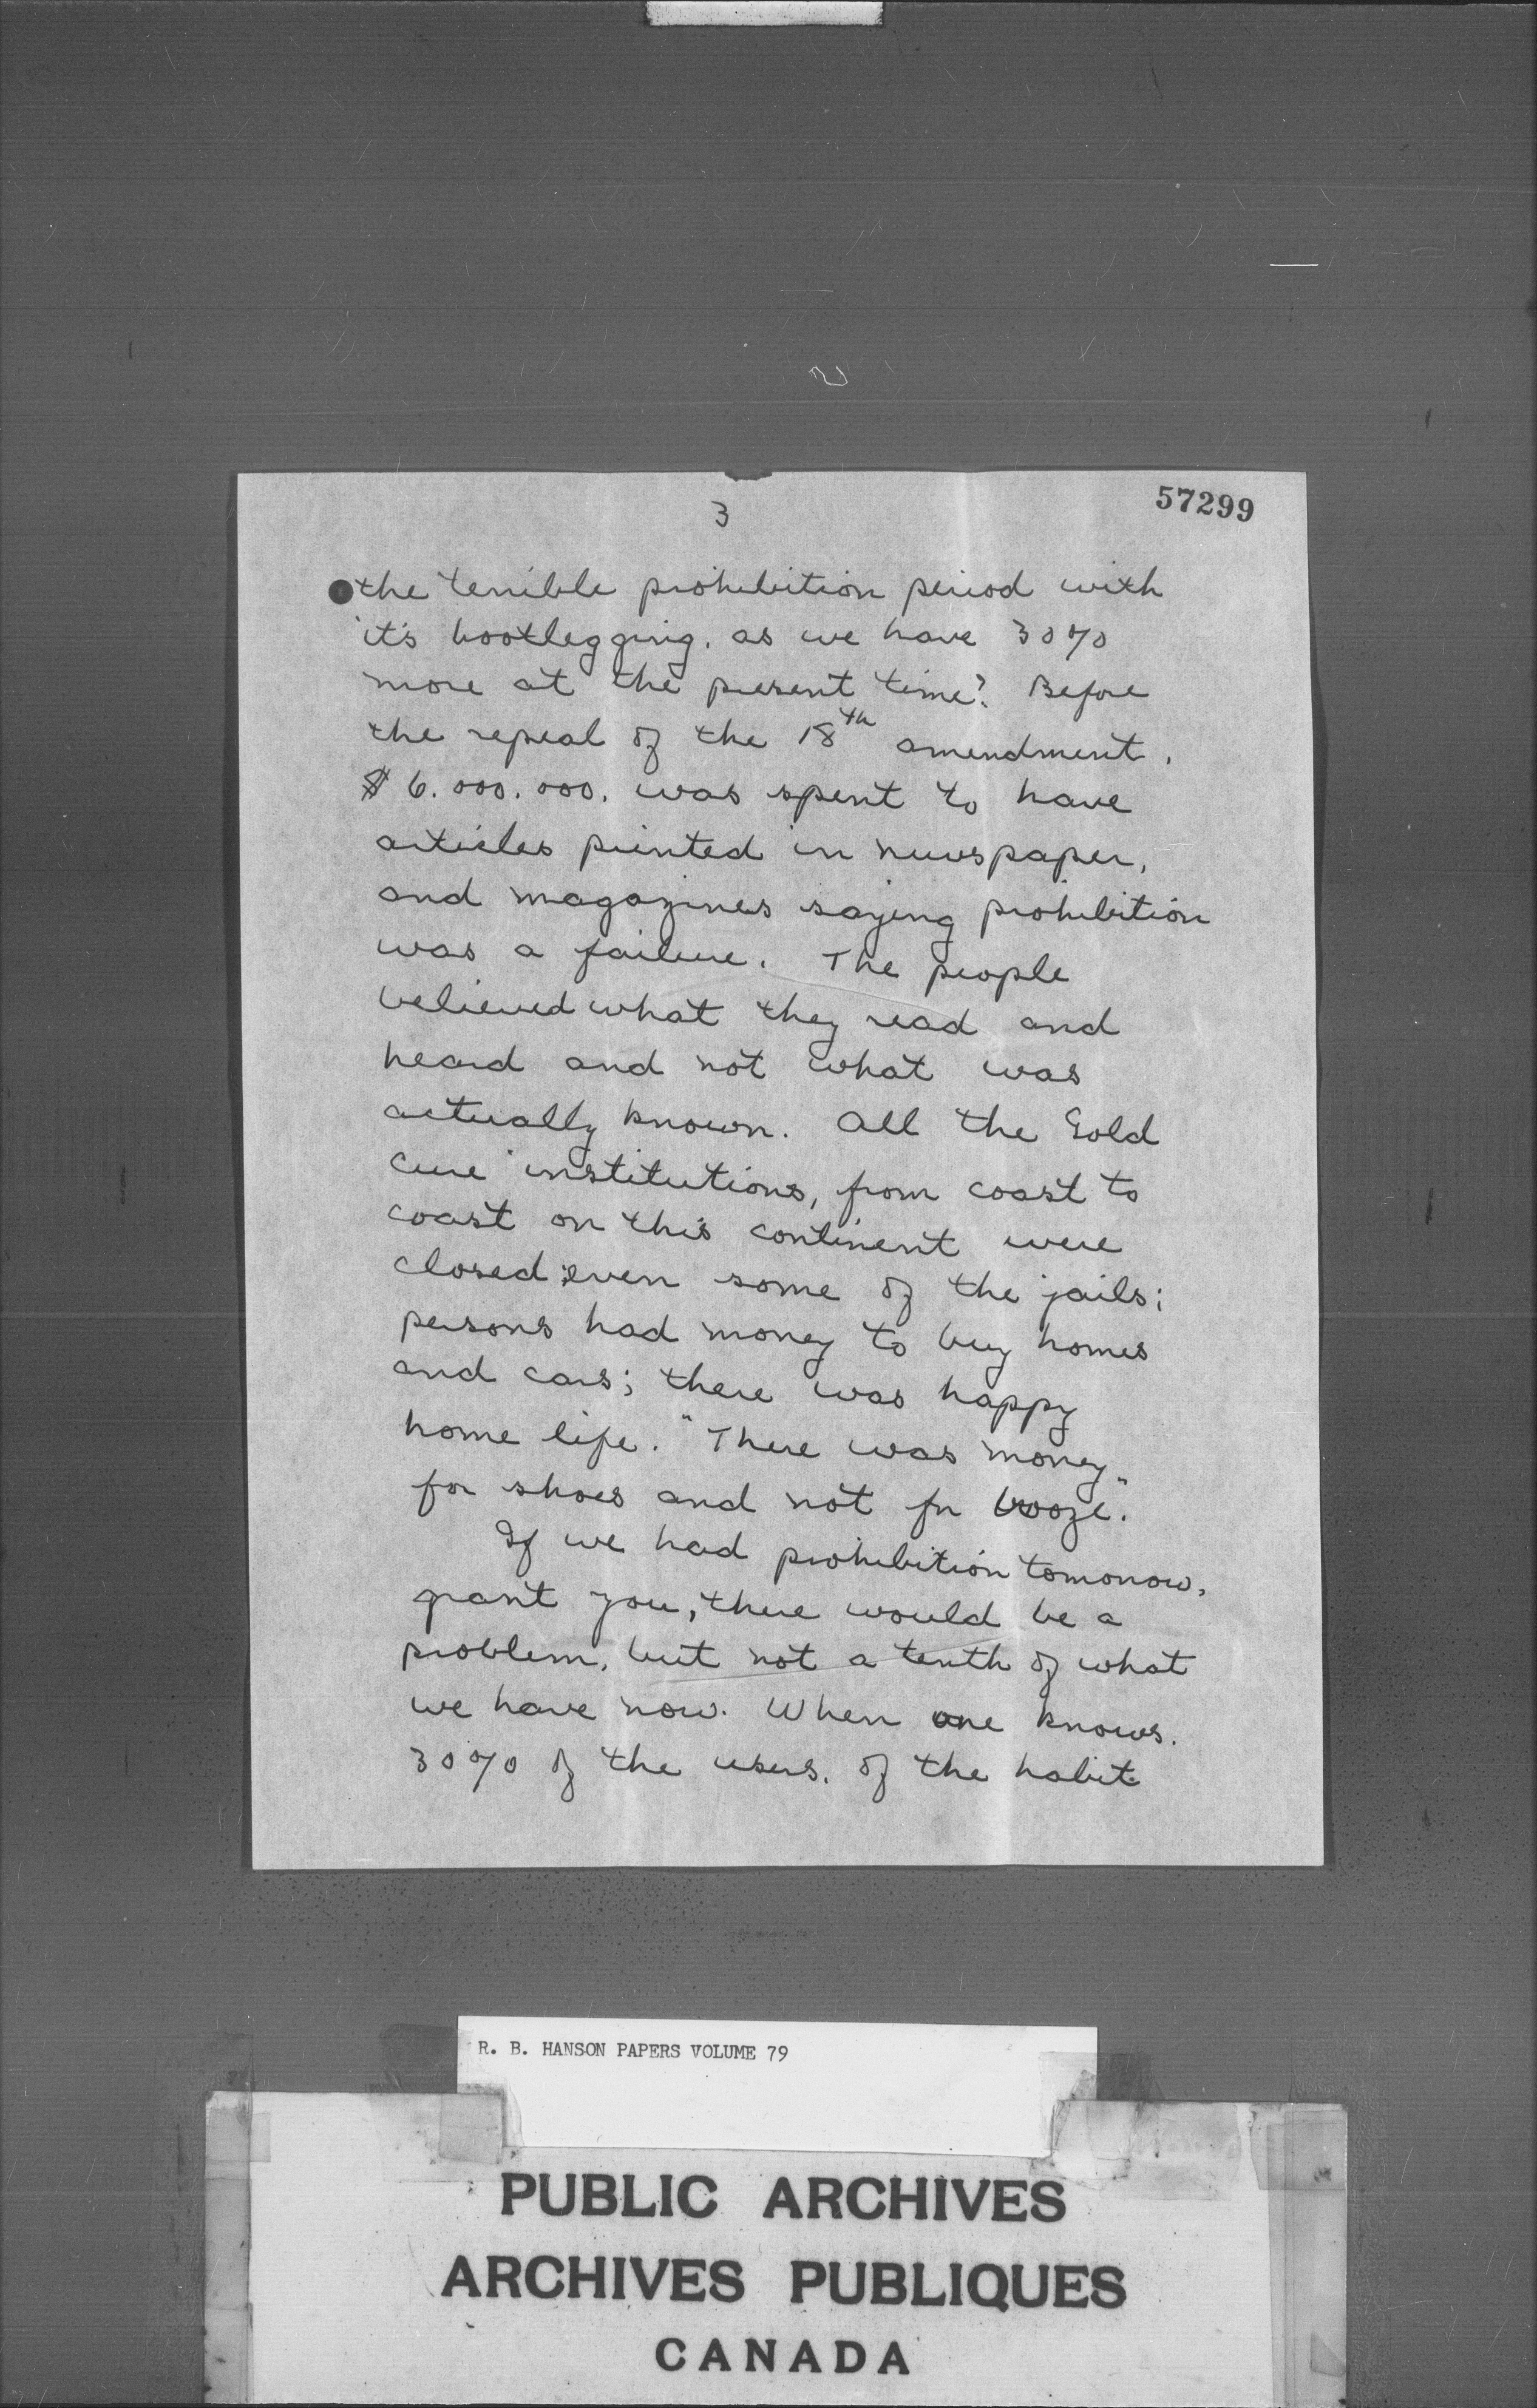 3
57299
the terrible prohibition period with
it's bootlegging. as we have 30%
more at the present time? Before
the repeal of the 18th amendment.
$6.000.000. was spent to have
articles printed in newspaper,
and magazines saying prohibition
was a failure. The people
believed what they read and
heard and not what was
actually known. All the Gold
cure institutions, from coast to
coast on this continent were
closed; even some of the jails;
persons had money to buy homes
and cars; there was happy
home life. "There was money
for shoes and not for booze".
If we had prohibition tomorrow,
grant you, there would be a
problem, but not a tenth of what
we have now. When one knows.
30% of the users. of the habit
R. B. HANSON PAPERS VOLUME 79
PUBLIC ARCHIVES
ARCHIVES PUBLIQUES
CANADA